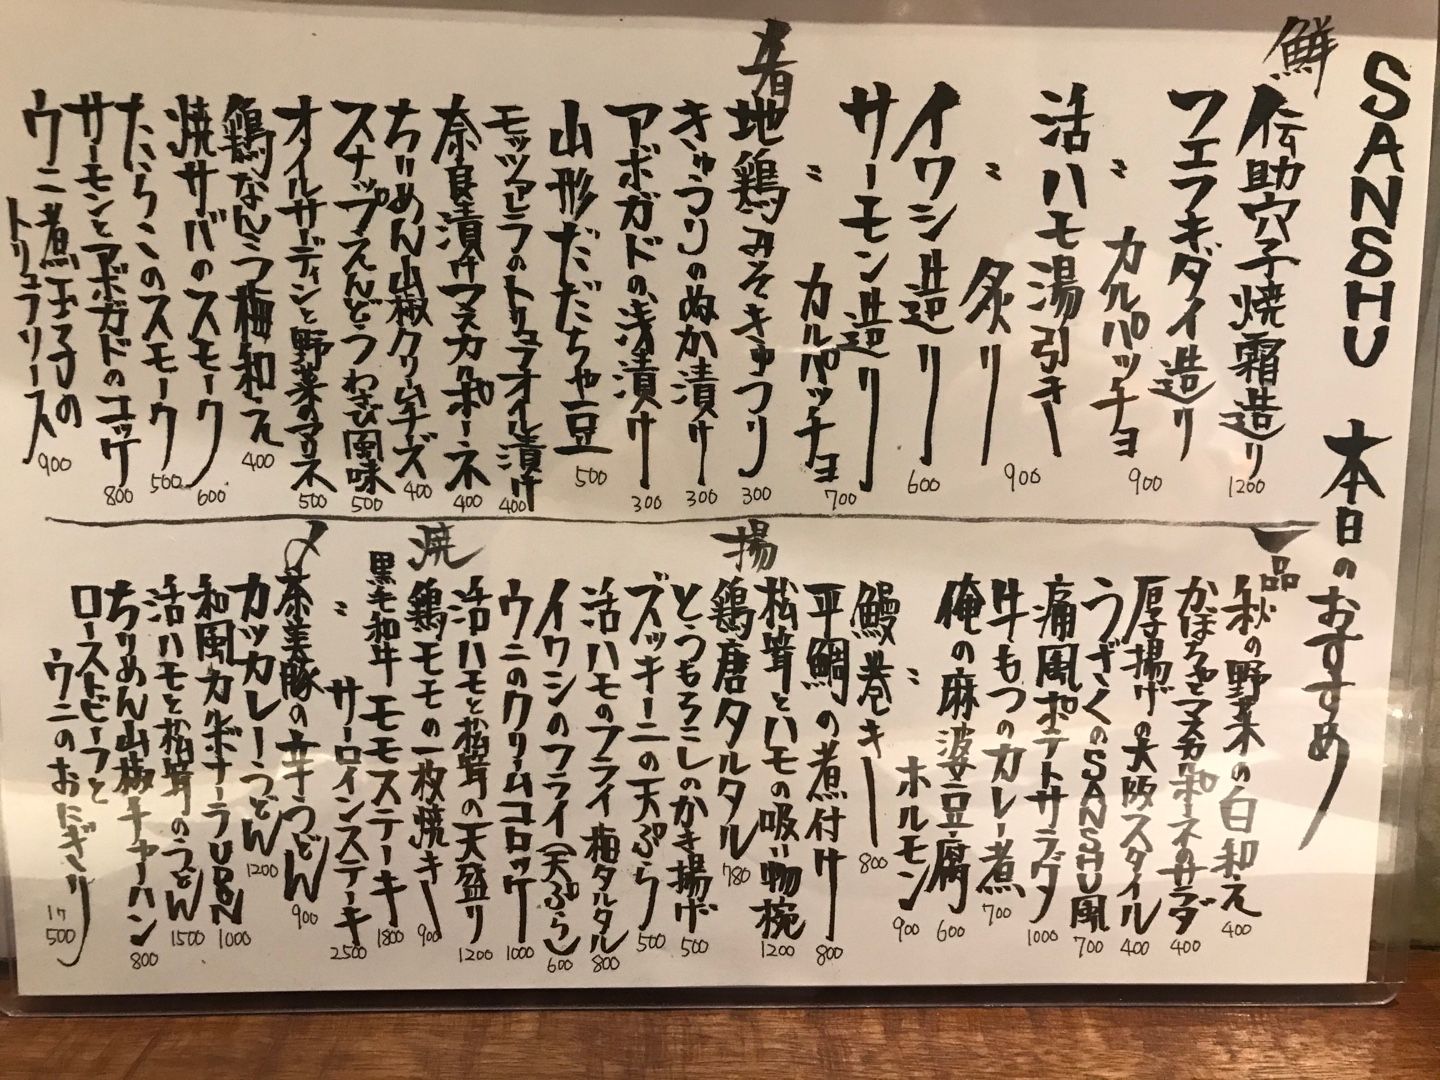 SANSHU 本日のおすすめ
鮮
伝助穴子焼霜造り 1200
フエフキダイ造り
〃 カルパッチョ 900
活ハモ湯引き
〃 炙り 900
イワシ造り 600
サーモン造り
〃 カルパッチョ 700
肴
地鶏みそきゅうり 300
きゅうりのぬか漬け 300
アボガドの浅漬け 300
山形だだちゃ豆 500
モッツァレラのトリュフオイル漬け 400
奈良漬けマスカルポーネ 400
ちりめん山椒クリームチーズ 400
スナップえんどうわさび風味 500
オイルサーディンと野菜のマリネ 500
鶏なんこつ梅和え 400
焼サバのスモーク 600
たらこのスモーク 500
サーモンとアボガドのユッケ 800
ウニ煮玉子の
トリュフソース 900
一品
秋の野菜の白和え 400
かぼちゃとマスカルポーネのサラダ 400
厚揚げの大阪スタイル 400
うざくのSANSHU風 700
痛風ポテトサラダ 1000
牛もつのカレー煮 700
俺の麻婆豆腐 600
〃 ホルモン 900
鰻巻き 800
平鯛の煮付け 800
松茸とハモの吸い物椀 1200
揚
鶏唐タルタル 780
とうもろこしのかき揚げ 500
ズッキーニの天ぷら 500
活ハモのフライ梅タルタル 800
イワシのフライ(天ぷら) 600
ウニのクリームコロッケ 1000
活ハモと松茸の天盛り 1200
焼
鶏モモの一枚焼き 900
黒毛和牛 モモステーキ 1800
〃 サーロインステーキ 2500
〆
茶美豚の辛うどん 900
カツカレーうどん 1200
和風カルボナーラUDON 1000
活ハモと松茸のうどん 1500
ちりめん山椒チャーハン 800
ローストビーフと
ウニのおにぎり 1ケ 500